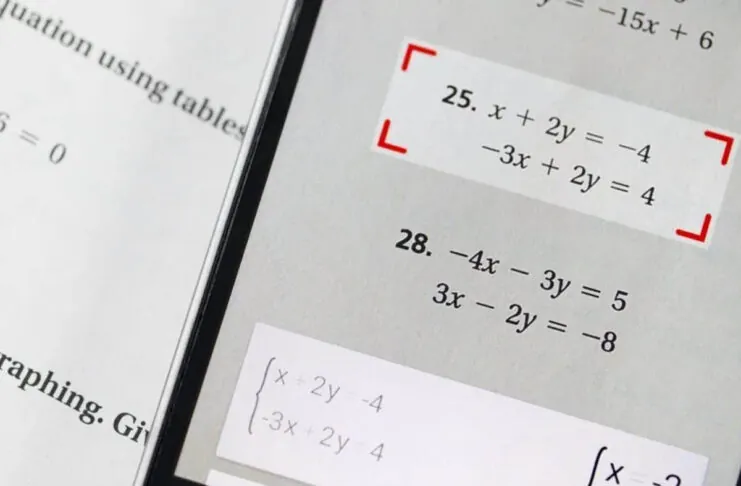 quation using tables
= 0
raphing. Gi
= −15x + 6
25. x + 2y = −4
−3x + 2y = 4
28. −4x − 3y = 5
3x − 2y = −8
x + 2y -4
-3x 2y 4
x